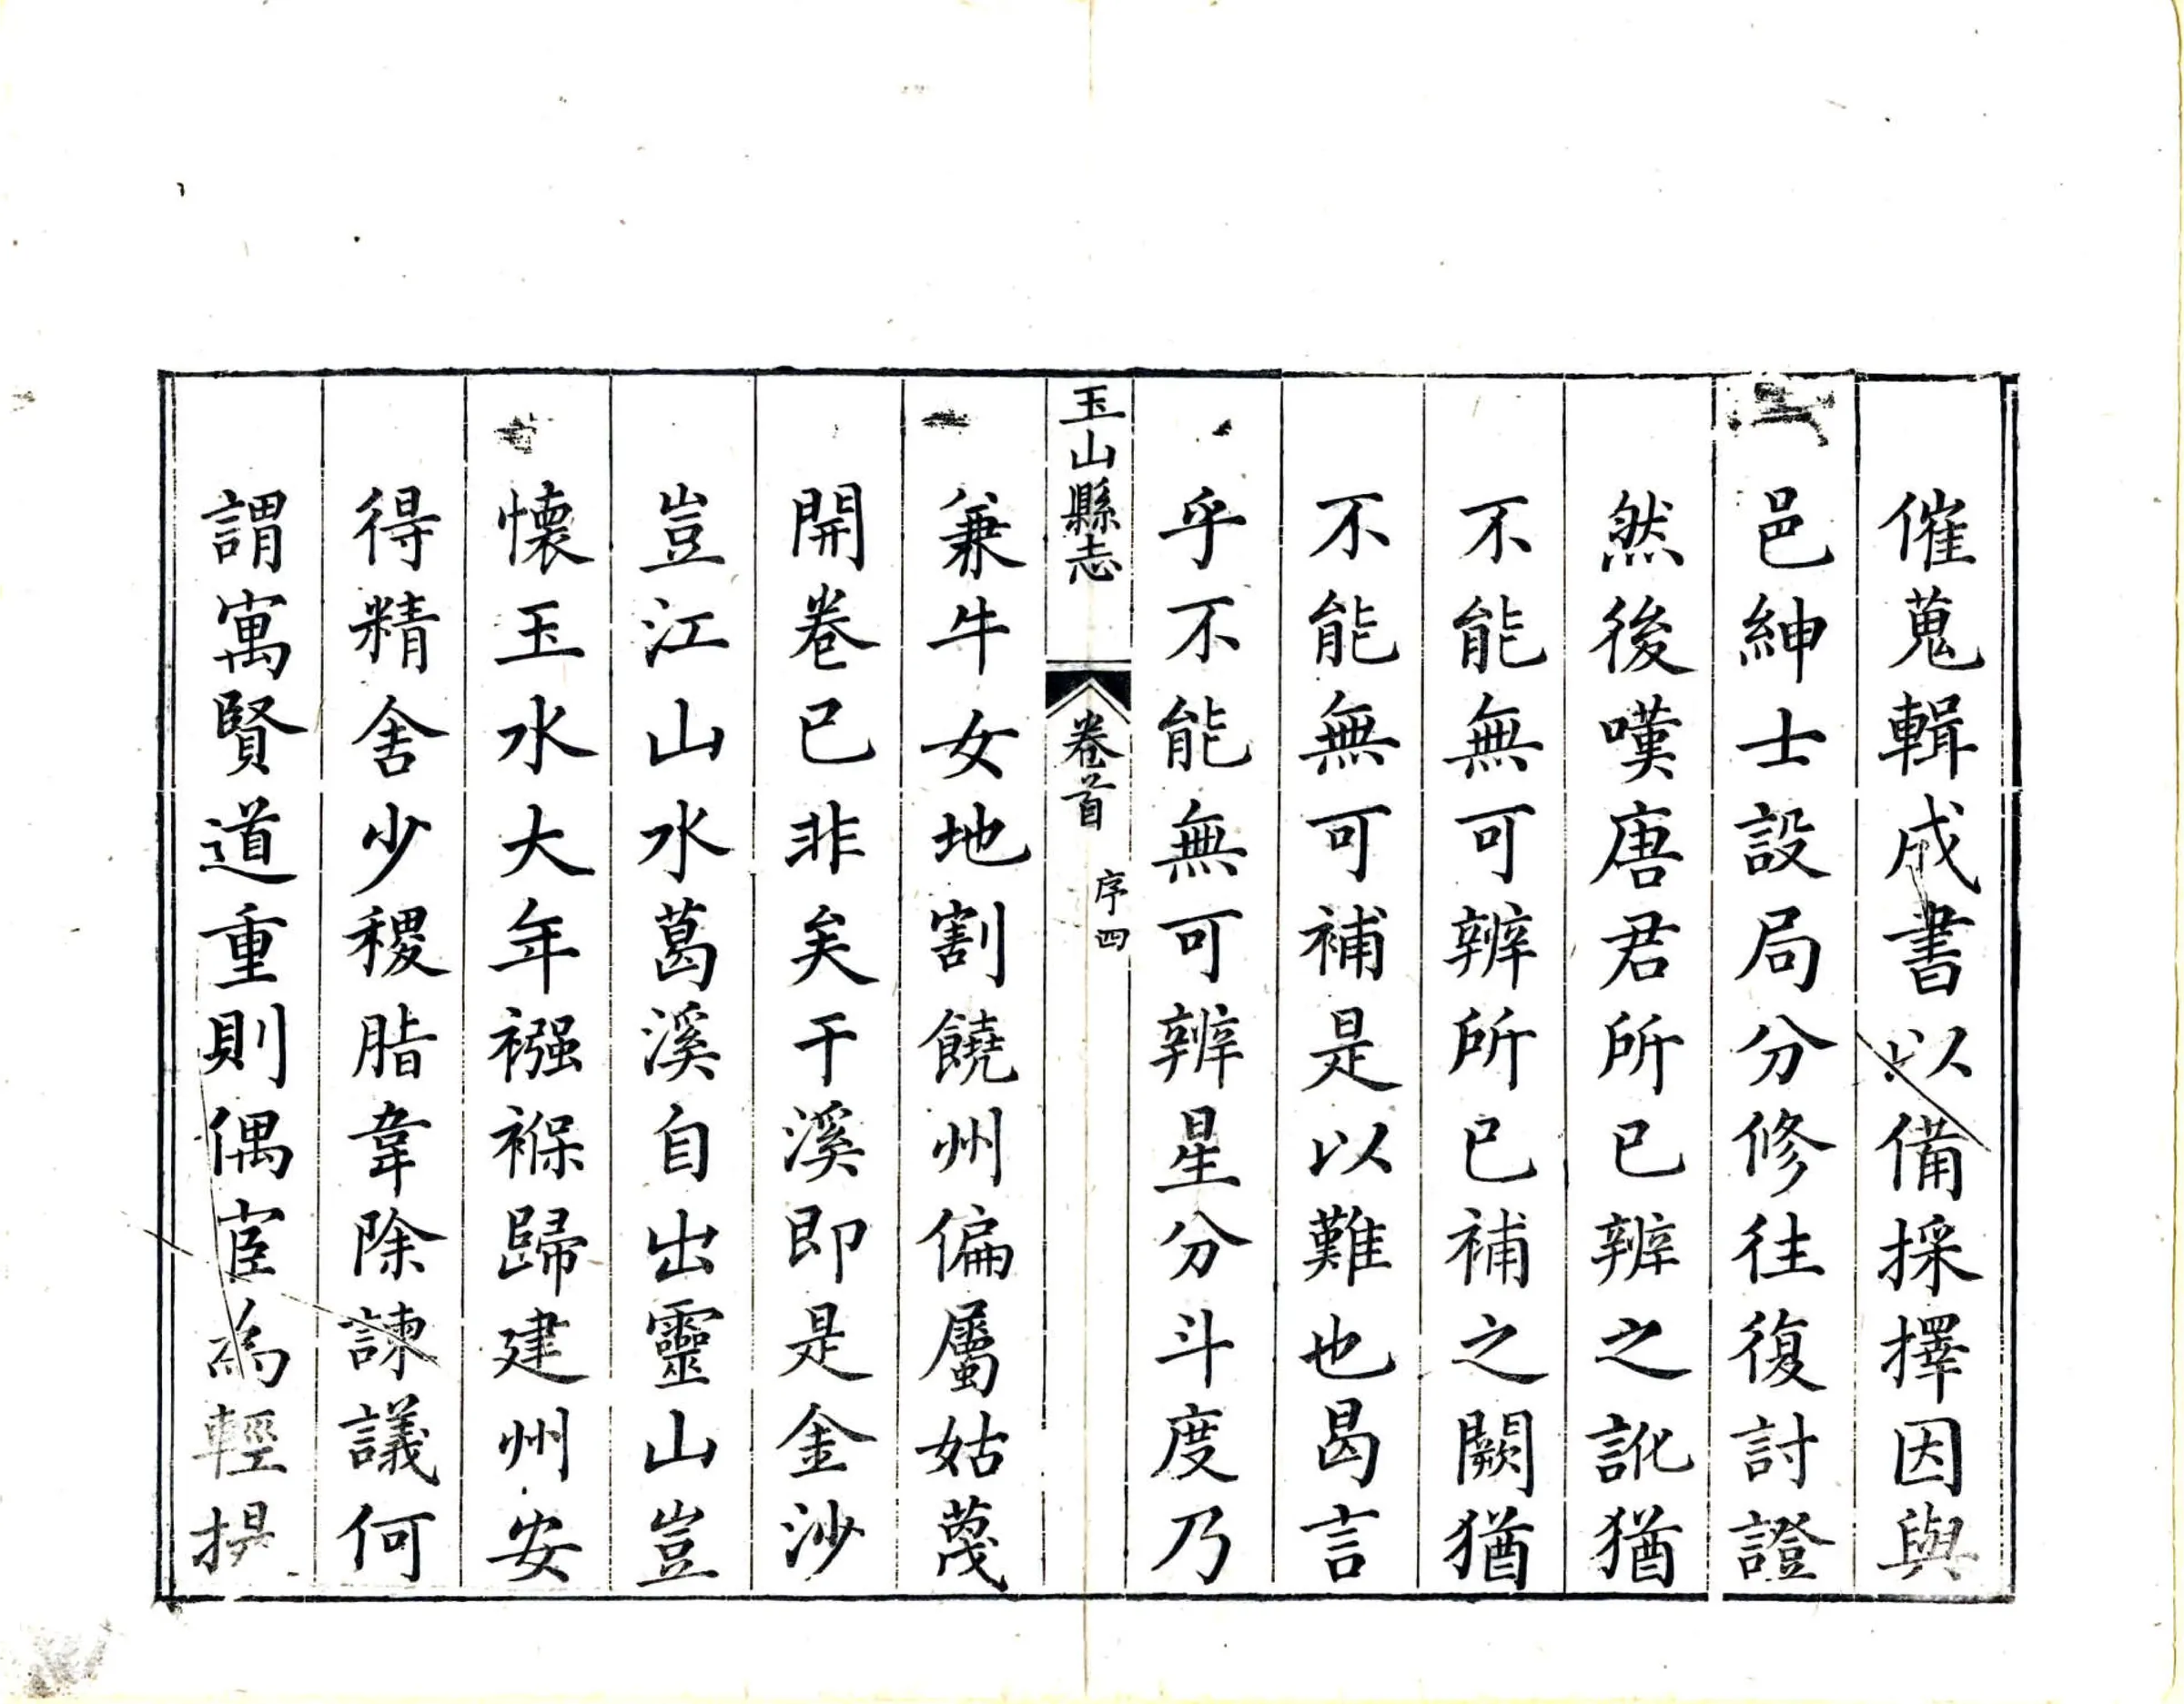 催蒐輯成書以備採擇因與
邑紳士設局分修往復討證
然後嘆唐君所已辨之訛猶
不能無可辨所已補之闕猶
不能無可補是以難也曷言
乎不能無可辨星分斗度乃
玉山縣志 卷首 序四
兼牛女地割饒州偏屬姑蔑
開卷已非矣干溪即是金沙
豈江山水葛溪自出靈山豈
懷玉水大年襁褓歸建州安
得精舍少稷脂韋除諫議何
謂寓賢道重則偶宦為輕提